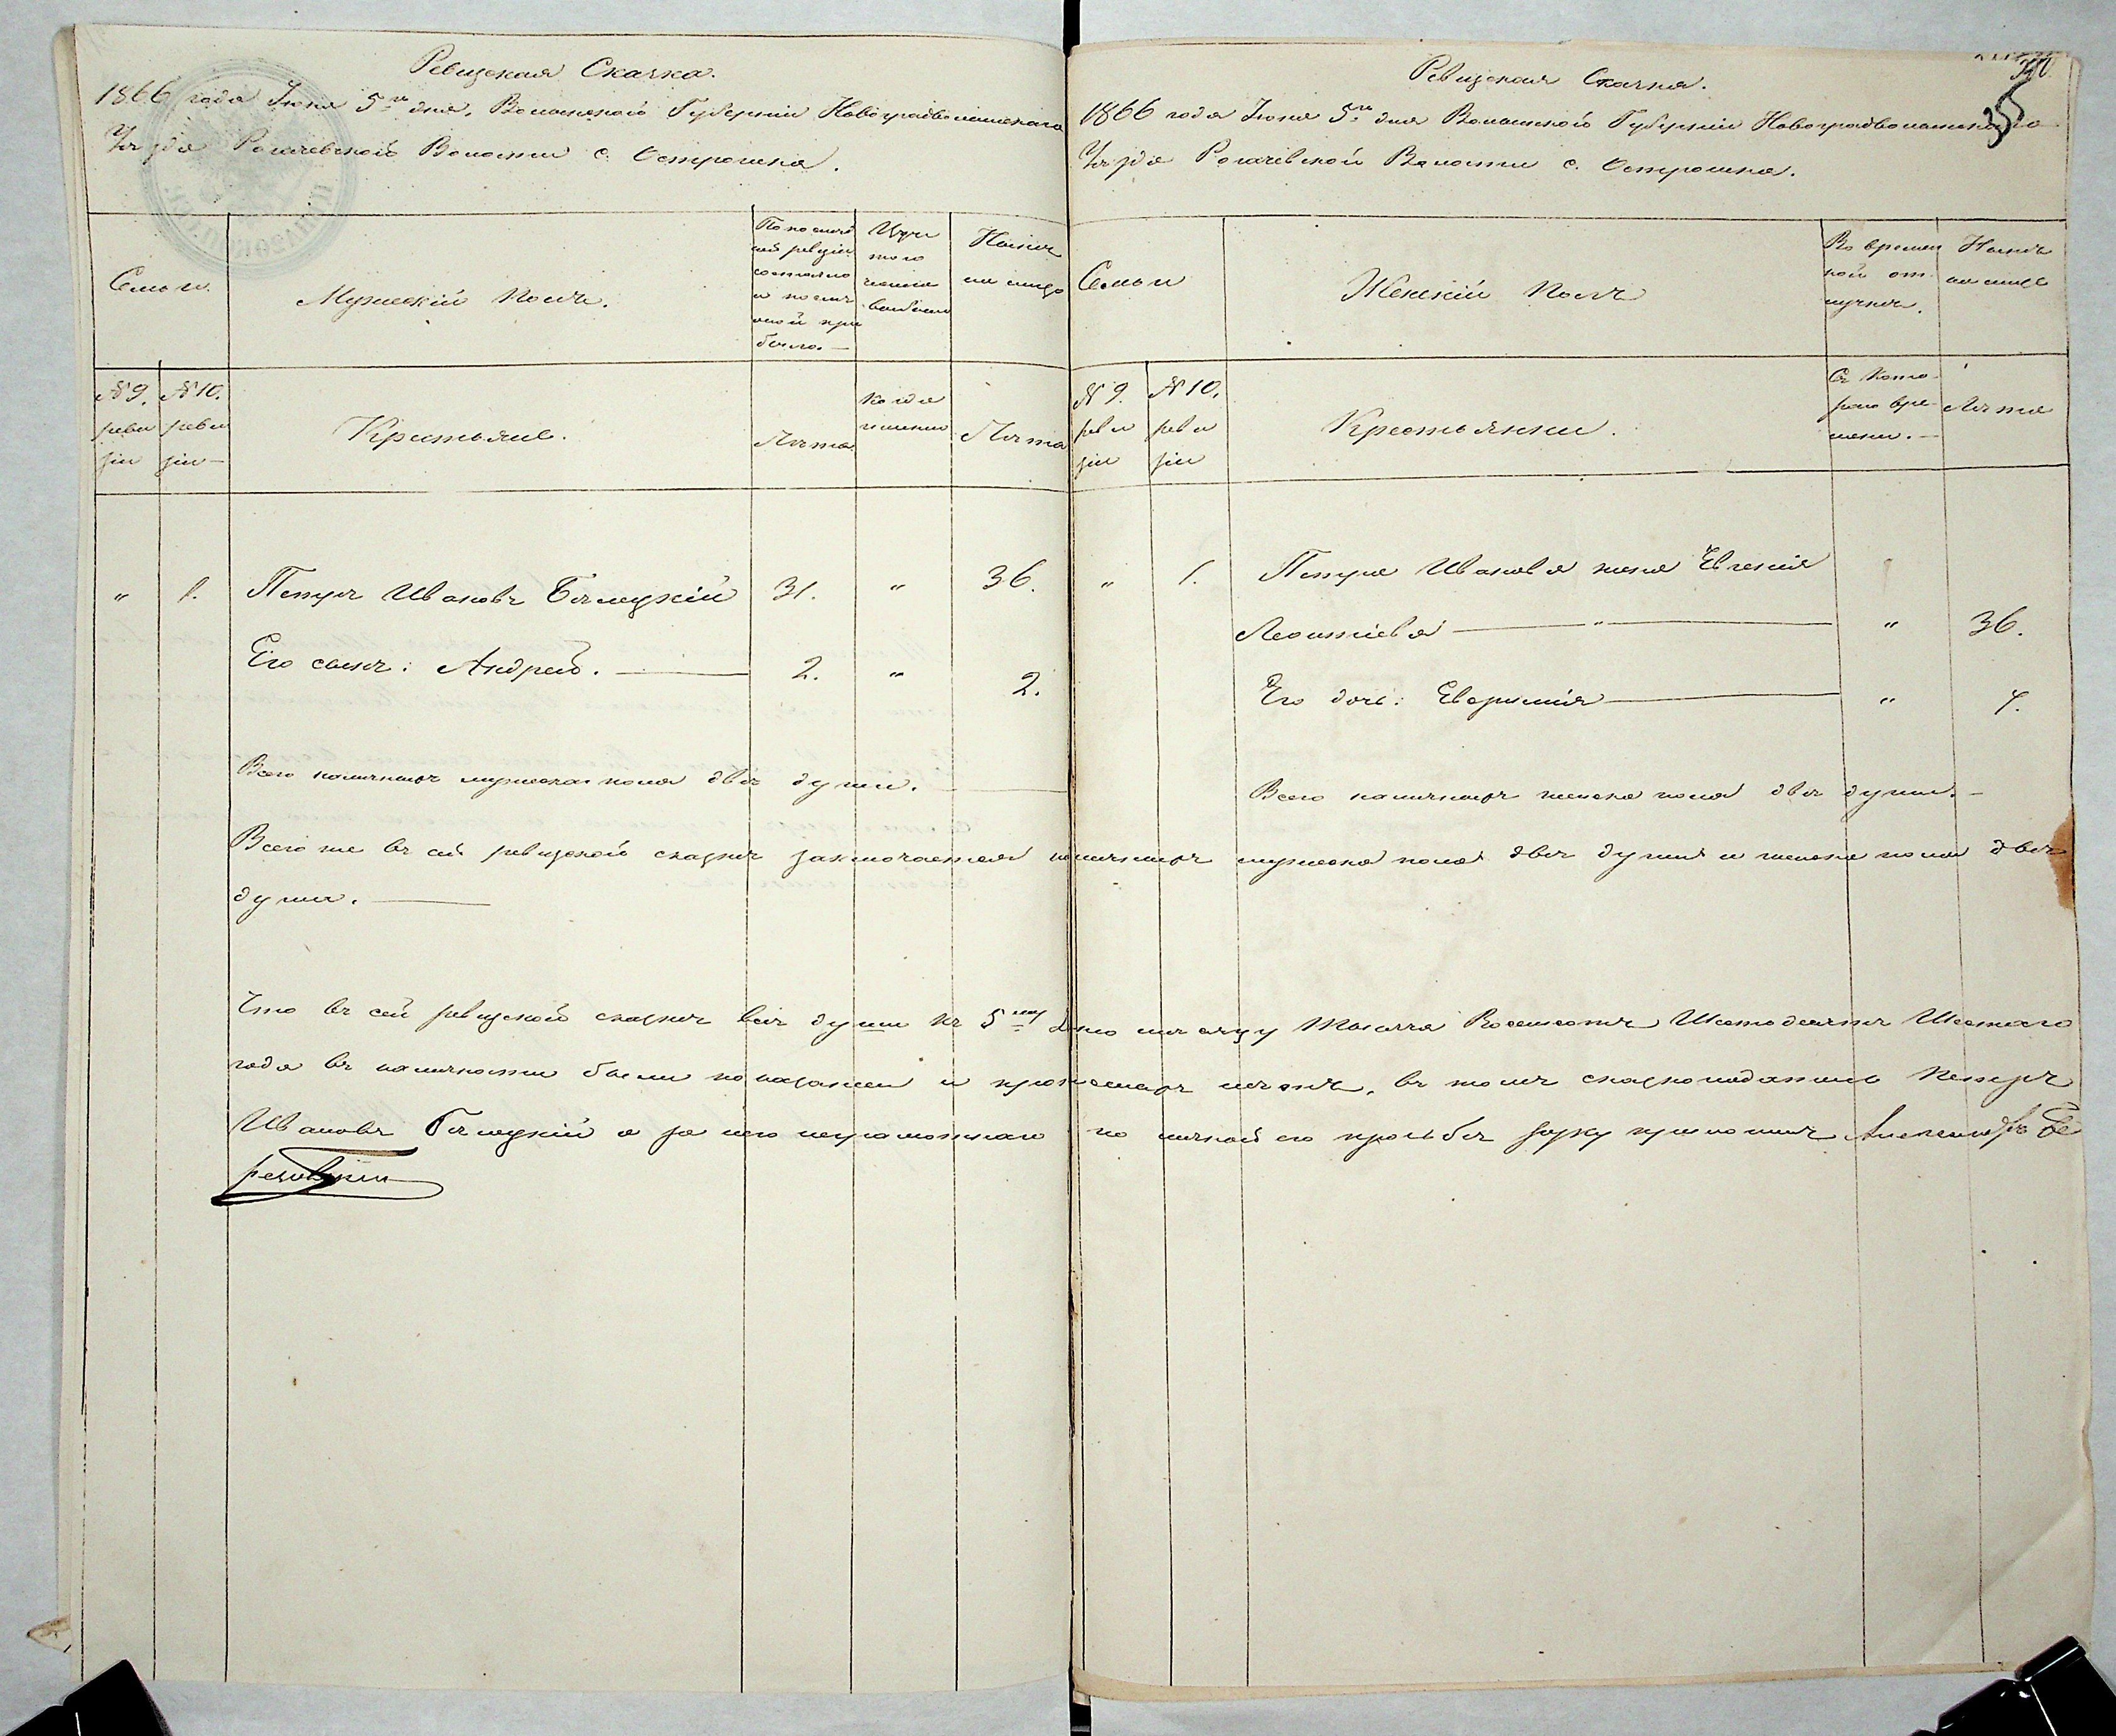 Ревизская Сказка.
1866 года Іюня 5го дня, Волынской Губерніи Новоградволынскаго
Уѣзда Рогачевской Волости с. Острожка.
Семьи.
Мужескій полъ.
По послѣд
ней ревизіи
состояло
и послѣ
оной при
было.—
Изъ
того
числа
выбыло
Налич
на лицо
№ 9.
реви
зіи
№ 10.
реви
зіи—
Крестьяне.
Лѣта.
Когда
именно
Лѣта
„ 1. Петръ Ивановъ Бѣлецкій 31. „ 36.
Его сынъ: Андрей. 2. „ 2.
Всего наличныхъ мужеска пола двѣ души.
Ревизская Сказка.
1866 года Іюня 5го дня Волынской Губерніи Новоградволынскаго
Уѣзда Рогачевской Волости с. Острожка.
Семьи
Женскій Полъ
Во времен
ной от
лучкѣ.
Нынѣ
на лицо
№ 9.
реви
зіи
№ 10.
реви
зіи
Крестьянки.
Съ Кото-
раго вре-
мени.—
Лѣта
„ 1. Петра Иванова жена Евгенія
Леонтіева „ „ 36.
Его дочь: Евдокія „
Всего наличныхъ женска пола двѣ души.—
Всего же въ сей ревизской сказкѣ заключается наличныхъ мужеска пола двѣ души и женска пола двѣ
души.
Что въ сей ревизской сказкѣ всѣ души къ 5му Іюня мѣсяцу Тысяча Восемсотъ Шестдесятъ Шестаго
года въ наличности были показаны и прописныхъ нѣтъ, въ томъ сказкоподатель Петръ
Ивановъ Бѣлецкій а за него неграмотнаго по личной его просьбѣ руку приложилъ Александръ Бе